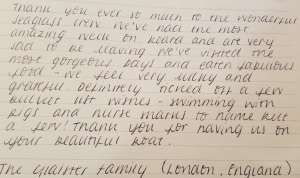 Thank you ever so much to the wonderful
seaglass crew. We've had the most
amazing week on board and are very
sad to be leaving. We've visited the
most gorgeous bays and eaten fabulous
food - we feel very lucky and
grateful. Definitely ticked off a few
bucket list wishes - swimming with
pigs and nurse sharks to name but
a few! Thank you for having us on
your beautiful boat.
The Family (London, England)